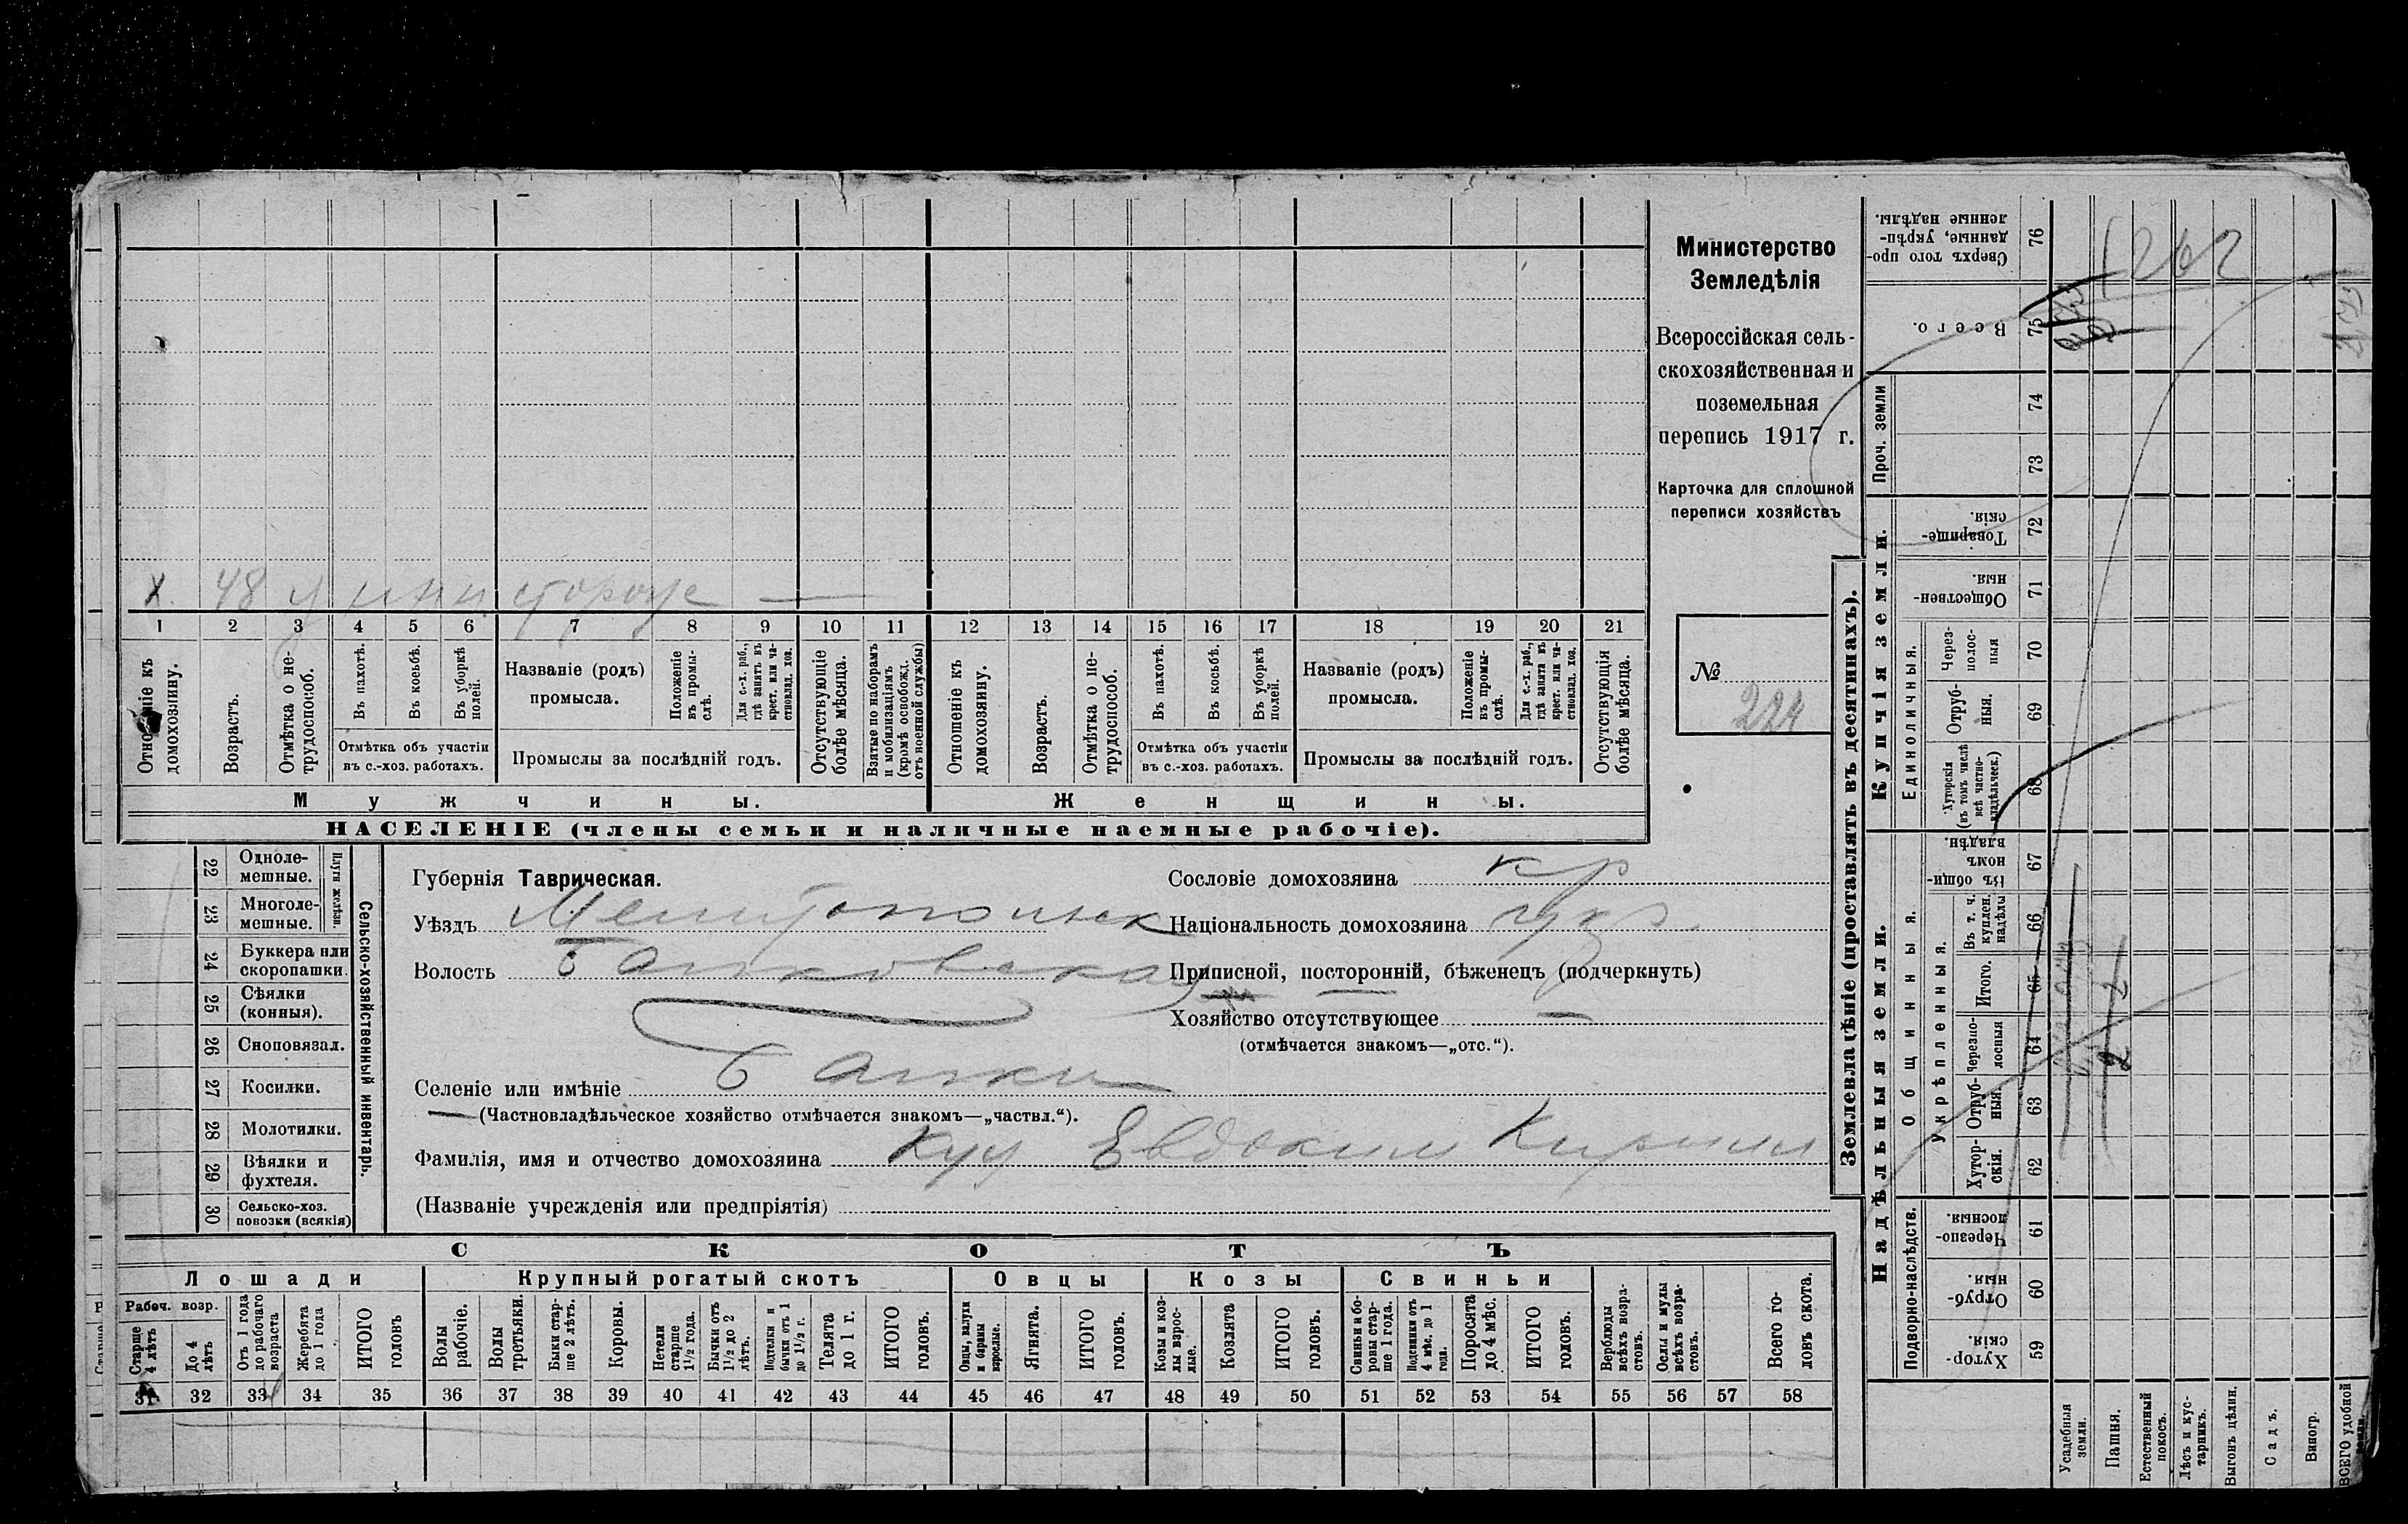 Министерство
Земледѣлія
Всероссійская сель-
скохозяйственная и
поземельная
перепись 1917 г.
Карточка для сплошной
переписи хозяйствъ
№
224
х 48
1 2 3 4 5 6 7 8 9 10 11 12 13 14 15 16 17 18 19 20 21
Отношеніе къ домохозяину.
Возрастъ.
Отмѣтка о не-трудоспособ.
Въ пахотѣ.
Въ косьбѣ.
Въ уборкѣ полей.
Отмѣтка объ участіи
въ с.-хоз. работахъ.
Названіе (родъ)
промысла.
Положеніе въ промы-слѣ.
Для с.-х. раб., гдѣ занятъ въ крест. или ча-стновлад. хоз.
Промыслы за послѣдній годъ.
Отсутствующіе болѣе мѣсяца.
Взятые по наборамъ и мобилизаціямъ (кромѣ освобожд. отъ военной службы)
Отношеніе къ домохозяину.
Возрастъ.
Отмѣтка о не-трудоспособ.
Въ пахотѣ.
Въ косьбѣ.
Въ уборкѣ полей.
Отмѣтка объ участіи
въ с.-хоз. работахъ.
Названіе (родъ)
промысла.
Положеніе въ промы-слѣ.
Для с.-х. раб., гдѣ занята въ крест. или ча-стновлад. хоз.
Промыслы за послѣдній годъ.
Отсутствующія болѣе мѣсяца.
Мужчины.
Женщины.
НАСЕЛЕНІЕ (члены семьи и наличные наемные рабочіе).
Сельско-хозяйственный инвентарь.
Плуги желѣзн.
22 Одноле-мешные.
23 Многоле-мешные.
24 Буккера или скоропашки.
25 Сѣялки (конныя).
26 Сноповязал.
27 Косилки.
28 Молотилки.
29 Вѣялки и фухтеля.
30 Сельско-хоз. повозки (всякія)
Губернія Таврическая.
Уѣздъ Мелитопольск
Волость Балковская
Селеніе или имѣніе Балки
(Частновладѣльческое хозяйство отмѣчается знакомъ—„частвл.“).
Фамилія, имя и отчество домохозяина Куц Евдоким Кирилл
(Названіе учрежденія или предпріятія)
Сословіе домохозяина кр
Національность домохозяина укр
Приписной, посторонній, бѣженецъ (подчеркнуть)
Хозяйство отсутствующее —
(отмѣчается знакомъ—„отс.“).
СКОТЪ
Лошади
Крупный рогатый скотъ
Овцы
Козы
Свиньи
Рабоч. возр.
Старше 4 лѣтъ
До 4 лѣтъ
Отъ 1 года до рабочаго возраста
Жеребята до 1 года
ИТОГО головъ
Волы рабочіе.
Волы третьяки.
Быки стар-ше 2 лѣтъ.
Коровы.
Нетели старше 1½ года.
Бычки отъ 1½ до 2 лѣтъ.
Подтелки и бычки отъ 1 до 1½ г.
Телята до 1 г.
ИТОГО головъ.
Овцы, валухи и бараны взрослые.
Ягнята.
ИТОГО головъ.
Козы и коз-лы взрос-лые.
Козлята
ИТОГО головъ.
Свиньи и бо-ровы стар-ше 1 года.
Подсвинки отъ 4 мѣс. до 1 года.
Поросята до 4 мѣс.
ИТОГО головъ.
Верблюды всѣхъ возра-стовъ.
Ослы и мулы всѣхъ возра-стовъ.
Всего го-ловъ скота.
31 32 33 34 35 36 37 38 39 40 41 42 43 44 45 46 47 48 49 50 51 52 53 54 55 56 57 58
Землевладѣніе (проставлять въ десятинахъ).
Надѣльныя земли.
Купчія земли.
Проч. земли
Подворно-наслѣдств.
Общинныя.
Укрѣпленныя.
Единоличныя.
59 Хутор-скія.
60 Отруб-ныя.
61 Черезпо-лосныя.
62 Хутор-скія.
63 Отруб-ныя.
64 Черезпо-лосныя
65 Итого.
66 Въ т. ч. куплен. надѣлы
67 Въ общи-номъ владѣн.
68 Хуторскія (въ томъ числѣ всѣ частно-владѣльческ.)
69 Отруб-ныя.
70 Через-полос-ныя
71 Обществен-ныя.
72 Товарище-скія.
73
74
75 Всего.
76 Сверхъ того про-данные, укрѣп-ленные надѣлы.
Усадебныя земли.
Пашня.
2 2
Естественный покосъ.
Лѣсъ и кус-тарникъ.
Выгонъ цѣлин.
Садъ.
Виногр.
ВСЕГО удобной земли.
1262